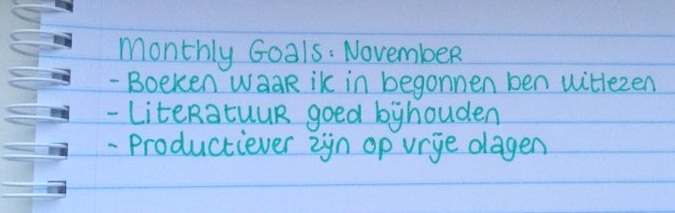 Monthly Goals: November
- Boeken waar ik in begonnen ben uitlezen
- Literatuur goed bijhouden
- Productiever zijn op vrije dagen